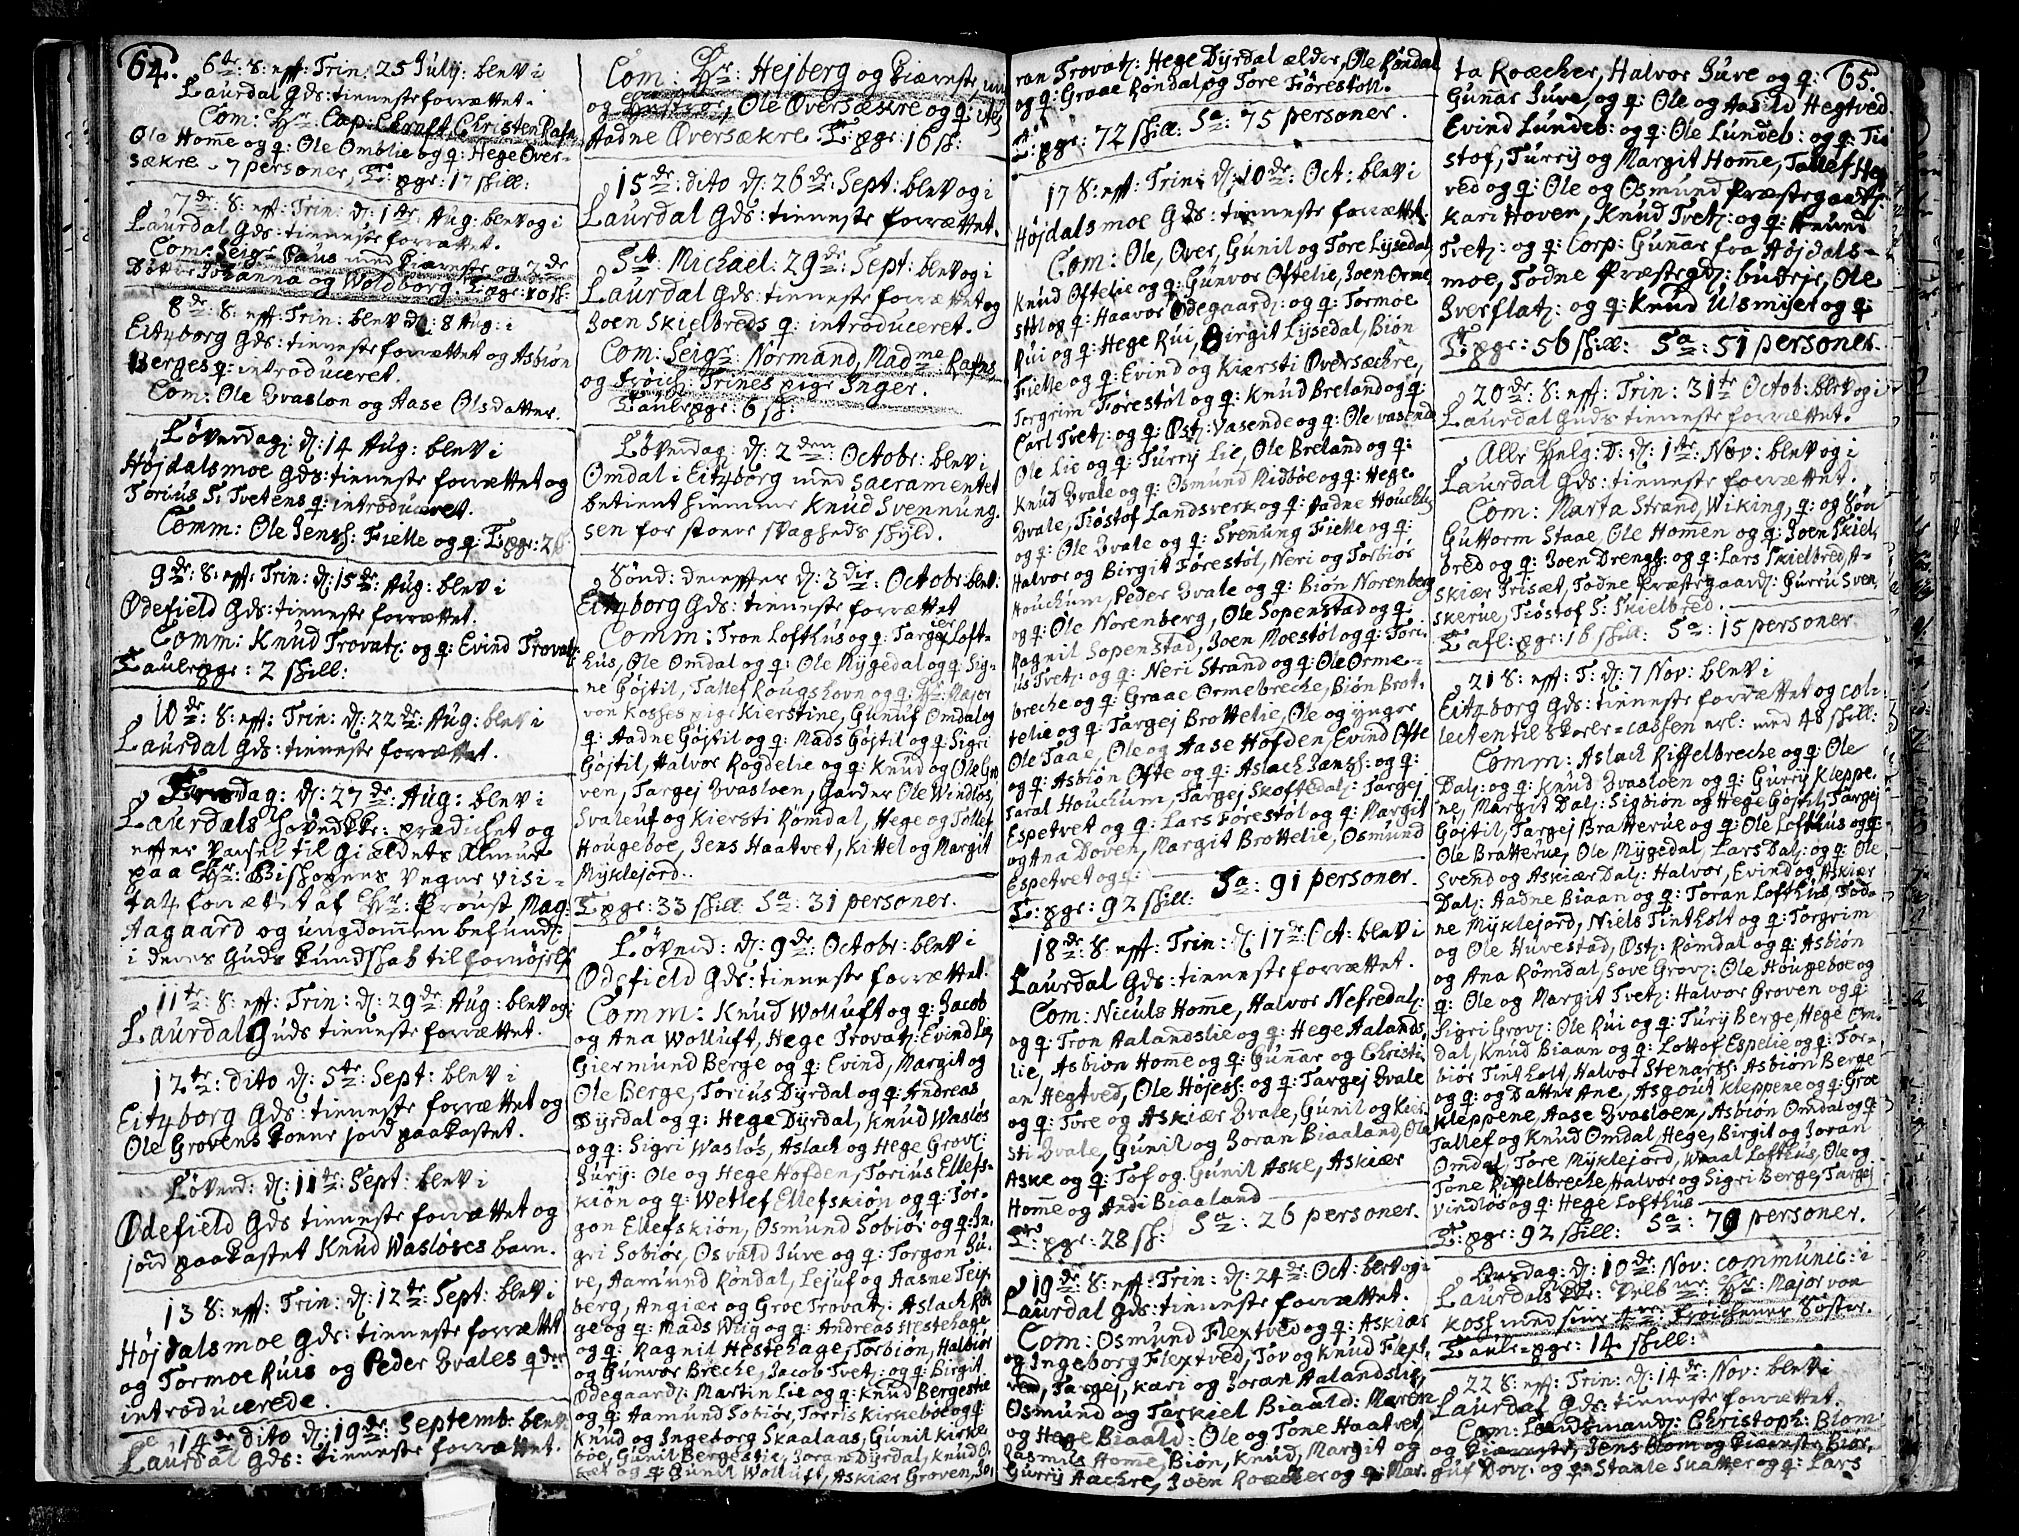 64.
6te: S: eff: Trin: 25 July: blev i
Laurdal Gds: tienneste forrættet.
Com: Hr: Cap: Christen
Ole Homme og q: Ole Omblie og q: Hege Over-
sækre - 7 personer, T: pgr: 17 skill:
7de: S: eff: Trin: d: 1te: Aug: blev og i
Laurdal Gds: tienneste forrættet.
Com: Seigr Paus med Kiæreste og 2de
Døttre Johanna og Woldborg. T: pgr: 10 sk:
8de: S: eff: Trin: blev d: 8 Aug: i
Eitzborg Gds: tienneste forrættet og Asbiøn
Berges q: introduceret.
Com: Ole Qvaslon og Aase Olsdatter.
Løverdag: d: 14 Aug: blev i
Højdalsmoe Gds: tienneste forrættet og
Torius T: Tvetens q: introduceret.
Comm: Ole Jenss: Fielle og q: T: pgr: 2 s
9de: S: eff: Trin: d: 15de: Aug: blev i
Ødefield Gds: tienneste forrættet.
Comm: Knud Trovatz: og q: Evind Trovatz:
Taulepgr: 2 skill:
10de: S: eff: Trin: d: 22de: Aug: blev i
Laurdal Gds: tienneste forrættet.
d: 27de: Aug: blev i
Laurdals Hoved Kk: prædicket og
efter varsel til Giældets Almue
paa Hr: Bishopens vegne visi-
tatz forrættet af Hr: Proust Mag:
Aagaard og ungdommen befund:
i deres Guds kundskab til fornøjelse
11te: S: eff: Trin: d: 29de: Aug: blev og i
Laurdal Guds tienneste forrættet.
12te: dito d: 5te: Sept: blev i
Eitzborg Gds: tienneste forrættet og
Ole Grovens kone jord paakastet.
Løverd: d: 11te: Sept: blev i
Ødefield Gds tienneste forrættet og
jord paakastet Knud Wasløses barn.
13 S: eff: Trin: d: 12te: Sept: blev i
Højdalsmoe Gds: tienneste forrættet
og Tormoe Ruis og Peder Qvales qder
introducerede.
14de dito d: 19de: Septemb: blev i
Laurdal Gds: tienneste forrættet.
Com: Hr: Hejberg og Kiæreste,
og Ole Oversækre og q:
Aadne Oversækre T: pgr: 16 sk:
15de: dito d: 26de: Sept: blev og i
Laurdal Gds: tienneste forrættet.
Sct Michael: 29de: Sept: blev og i
Laurdal Gds: tienneste forrættet og
Joen Skielbreds q: introduceret.
Com: Seigr: Normand, Madme: Rafns
og frøich: Trines pige Inger.
Taulepgr: 6 sk:
Løverdag: d: 2den: Octobr: blev i
Omdal i Eitzborg med Sacramentet
betient Knud Svennung
sen for svagheds skyld.
Sønd: derefter d: 3die: Octobr: blev i
Eitzborg Gds: tienneste forrættet
Comm: Tron Lofthus og q: Targier Loft-
hus, Ole Omdal og q: Ole Mygedal og q: Sig-
ne Gøjtil, Tallef Rougshovn og q: Hr: Major
von Kosses pige Kierstine, Gunuf Omdal og
q: Aadne Gøjtil og q: Mads Gøjtil og q: Sigri
Gøjtil, Halvor Rogdelie og q: Knud og Ole Gro
ven, Targej Qvasloen, Garder Ole Windløs,
Svaleuf og Kiersti Rømdal, Hege og Tollef
Hougeboe, Jens Haatvet, Kittel og Margit
Myklejord.
T: pgr: 33 skill: Sa: 31 personer.
Løverd: d: 9de: Octobr: blev i
Ødefield Gds: tienneste forrættet.
Comm: Knud Wolluft og q: Jacob
og Ana Wolluft, Hege Trovatz: Evind Lie
Giermund Berge og q: Evind, Margit og
Ole Berge, Torius Dyrdal og q: Andreas
Dyrdal og q: Hege Dyrdal, Knud Wasløs
og q: Sigri Wasløs, Aslach og Hege Grov:
Jury: Ole og Hege Hofden, Torius Ellefs-
kiøn og q: Wetlef Ellefskiøn og q: Tor-
gon Ellefskiøn, Osmund Sobiør og q: In-
gri Sobiør, Osvald Juve og q: Torgon Ju-
ve, Aamund Røndal, Lejuf og Aasne Tejs-
berg, Angiær og Groe Trovatz: Aslach Ros
ge og q: Mads Wiig og q: Andreas Hestehage
og q: Ragnil Hestehage, Torbiøn, Halbiør
og Gunvor Breche, Jacob Tvetz: og q: Birgit
Ødegaard: Martin Lie og q: Knud Bergestie
og q: Aamund Sobiør, Torris Kirkeboe og q:
Knud og Ingeborg Skaalaas, Gunil Kirke
boe, Gunil Bergestie, Joran Dyrdal, Knud O-
set og q: Gunil Wolluft, Askiær Groven, Jo-
ran Trovatz: Hege Dyrdal ælder, Ole Røndal
og q: Graae Røndal og Tore Førestoll.
T: pgr: 72 skill: Sa: 75 personer.
17 S: eff: Trin: d: 10de: Oct: blev i
Højdalsmoe Gds: tienneste forrættet.
Com: Ole, Over, Gunil og Tore Lysedal,
Knud Oftelie og q: Gunvor Oftelie, Joen Orme
støl og q: Haavor Ødegaard: og q: Tormoe
Rui og q: Hege Rui, Birgit Lysedal, Biøn
Fielle og q: Evind og Kiersti Oversæchre,
Torgrim Førestøl og q: Knud Breland og q:
Carl Tvetz: og q: Østz: Vasende og q: Ole vasende
Ole Lie og q: Turry Lie, Ole Breland og q:
Knud Qvale og q: Osmund Midbøe og q: Hege
Qvale, Tiøstof Landsverk og q: Aadne Houchli
og q: Ole Qvale og q: Svennung Fielle og q:
Halvor og Birgit Førestøl, Neri og Torbiør
Houchum, Peder Qvale og q: Biøn Norenberg
og q: Ole Norenberg, Ole Sopenstad og q:
Ragnil Sopenstad, Joen Moestøl og q: Tori-
us Tvetz: og q: Neri Strand og q: Ole Orme-
breche og q: Graae Ormebreche, Biøn Brot-
telie og q: Targej Brottelie, Ole og yngre
Ole Taae, Ole og Aase Hofden, Evind Ofte
og q: Asbiøn Ofte og q: Aslach Janss: og q:
Taral Houchum, Targej Skoftedal: Targej
Espetvet og q: Lars Førestøl og q: Margit
og Ana Doven, Margit Brottelie, Osmund
Espetvet og q:
T: pgr: 92 skill: Sa: 91 personer.
18de: S: eff: Trin: d: 17de: Oct: blev i
Laurdal Gds: tienneste forrættet.
Com: Niculs Homme, Halvor Nefredal:
og q: Tron Aalandslie og q: Hege Aalands
lie, Asbiøn Home og q: Gunnar og Christi-
an Hegtved, Ole Højess: og q: Targej Qvale
og q: Tore og Askiær Qvale, Gunil og Kier
sti Qvale, Gunil og Joran Biaaland, Ole
Aske og q: Tof og Gunil Aske, Askiær
Homme og Andi Biaaland
T: pgr: 28 sk: Sa: 26 personer.
19de: S: eff: Trin: d: 24de: Oct: blev og i
Laurdal Gds: tienneste forrættet.
Com: Osmund Flextved og q: Askiær
og Ingeborg Flextved, Tov og Knud Flext
ved, Targej, Kari og Joran Aalandslie,
Osmund og Tarkiel Biaald: Maren
og Hege Biaald: Ole og Tone Haatvet,
Rasmus Home, Biøn, Knud, Margit og
Gurry Aachre, Joen Roæcher og q: Mar-
65.
ta Roæcher, Halvor Juve og q:
Gunnar Juve, og q: Ole og Aasild Hegtved
Evind Lundeb: og q: Ole Lundeb: og q: Tiø
stof, Turry og Margit Homme, Tallef Heg
ved og q: Ole og Osmund Præstegaatz:
Kari Hoven, Knud Tvetz: og q: Knud
Tvetz: og q: Corp: Gunnar fra Højdals-
moe, Todne Præstegd: buttej:, Ole
Sverflatz: og q: Knud Ulsmyer og q:
T: pgr: 56 skill: Sa: 51 personer.
20de: S: eff: Trin: 31te Octob: blev og i
Laurdal Guds tienneste forrættet.
Alle Helg: D: d: 1te: Nov: blev og i
Laurdal Gds: tienneste forrættet.
Com: Marta Strand, Wiking, q: og Søn
Guttorm Staae, Ole Hommen og q: Joen Skiel
bred og q: Joen Drengs: og q: Lars Skielbred, A-
skiær Trisæt, Todne Præstegaard: Gurru Sven
skerue, Tiøstof S: Skielbred.
Tafl: pgr: 16 skill: Sa: 15 personer
21 S: eff: T: d: 7 Nov: blev i
Eitzborg Gds: tienneste forrættet og col-
lecten til Skole-cassen erl: med 48 skill:
Comm: Aslach Riffelbreche og q: Ole
Dal: og q: Knud Qvasloen og q: Gurry Kleppe-
ne, Margit Dal: Sigbiøn og Hege Gøjtil, Targej
Gøjtil, Targej Bratterue og q: Ole Lofthus og q:
Ole Bratterue, Ole Mygedal, Lars Dal: og q: Ole
Svend og Askiær Dal: Halvor, Evind og Askiær
Dal: Aadne Biaan og q: Toran Lofthus, Toda-
ne Myklejord, Niels Tintholt og q: Torgrim
og Ole Hurestad, Østz: Rømdal og q: Asbiøn
og Ana Rømdal, Sove Grov: Ole Hougeboe og
q: Ole og Margit Tvetz: Halvor Groven og q:
Sigri Grov: Ole Rui og q: Tury Berge, Hege Om-
dal, Knud Biaan og q: Lottof Espelie og q: Tor-
biør Tintholt, Halvor Stenarss: Asbiøn Berge
og q: og Datter Ane, Asgout Kleppene og q: Groe
Kleppene, Aase Qvasloen, Asbiøn Omdal og q:
Tallef og Knud Omdal, Hege, Birgit og Joran
Omdal, Tore Myklejord, Wraal Lofthus, Ole og
Tone Riffelbreche, Halvor og Sigri Berge, Targej
Vindløs og q: Hege Lofthus
T: pgr: 92 skill: Sa: 79 personer.
Onsdag: d: 10de: Nov: communic: i
Laurdals Kk: Velbne: Hr: Major von
Koss med sine 4re: frøichener Søster.
Taule-pgr: 14 skill:
22 S: eff: Trin: d: 14de: Nov: blev i
Laurdal Gds: tienneste forrættet.
Com: Lendsmand: Christoph: Blom
og Kiæreste, Jens Blom og Kiæreste, Biør-
guf Dov: og q: Staale Skatter og q: Lars